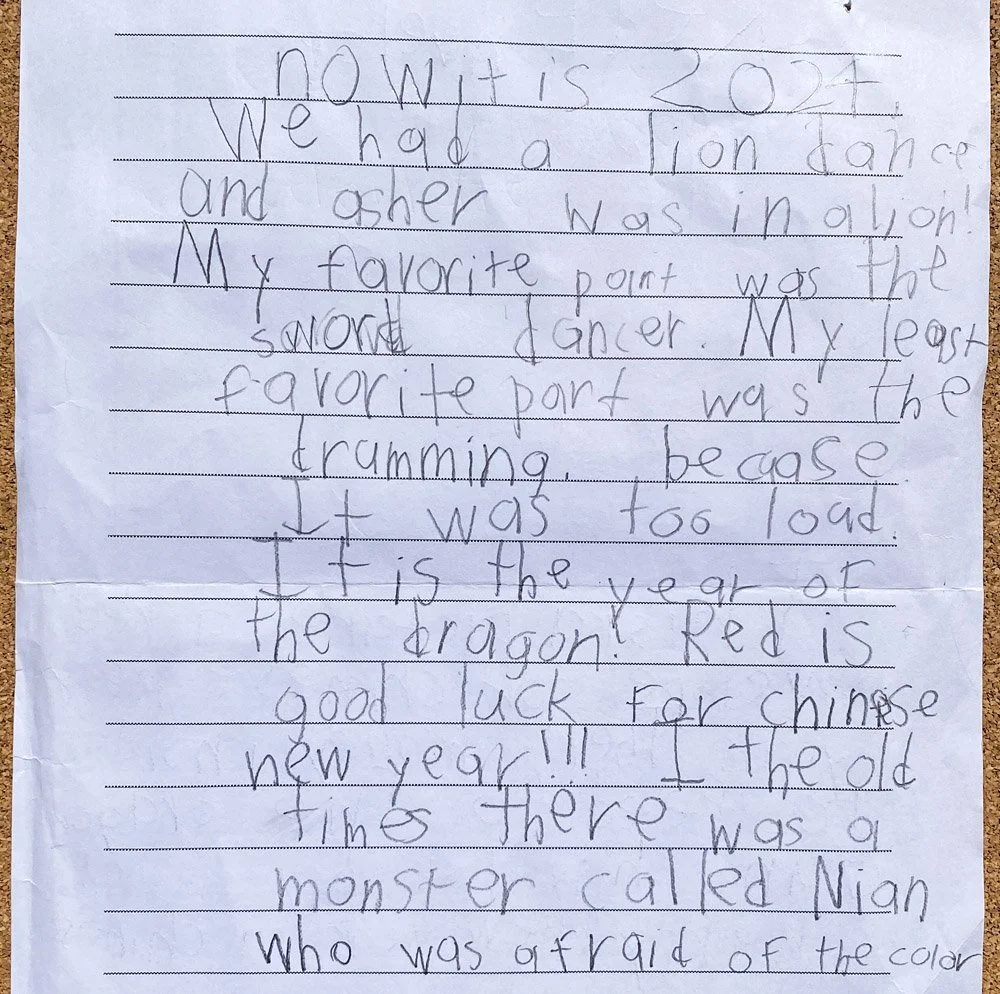 now it is 2024.
We had a lion dance
and asher was in a lion!
My favorite point was the
sword dancer. My least
favorite part was the
drumming. becaose
It was too load.
It is the year of
the dragon! Red is
good luck for chinese
new year!!! I the old
times there was a
monster called Nian
who was afraid of the color